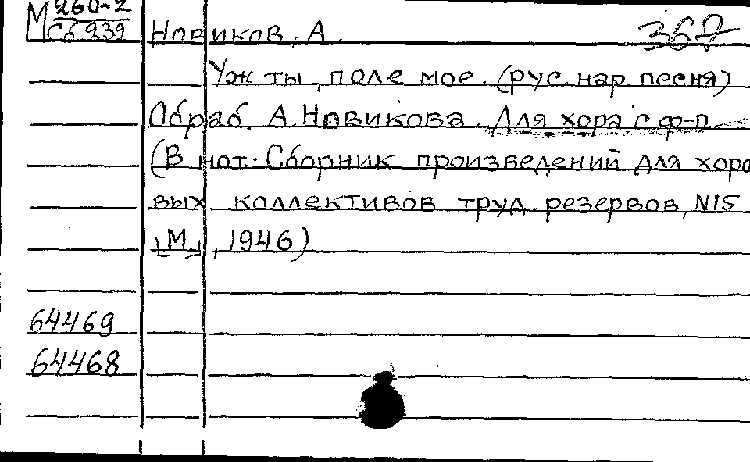 М 260-2
Сб 239
Новиков, А. 367
Уж ты, поле мое. (рус. нар. песня)
Обраб. А. Новикова. Для хора с ф-п.
(В нот. Сборник произведений для хоро
вых коллективов труд. резервов, N15
[М.], 1946)
64469
64468